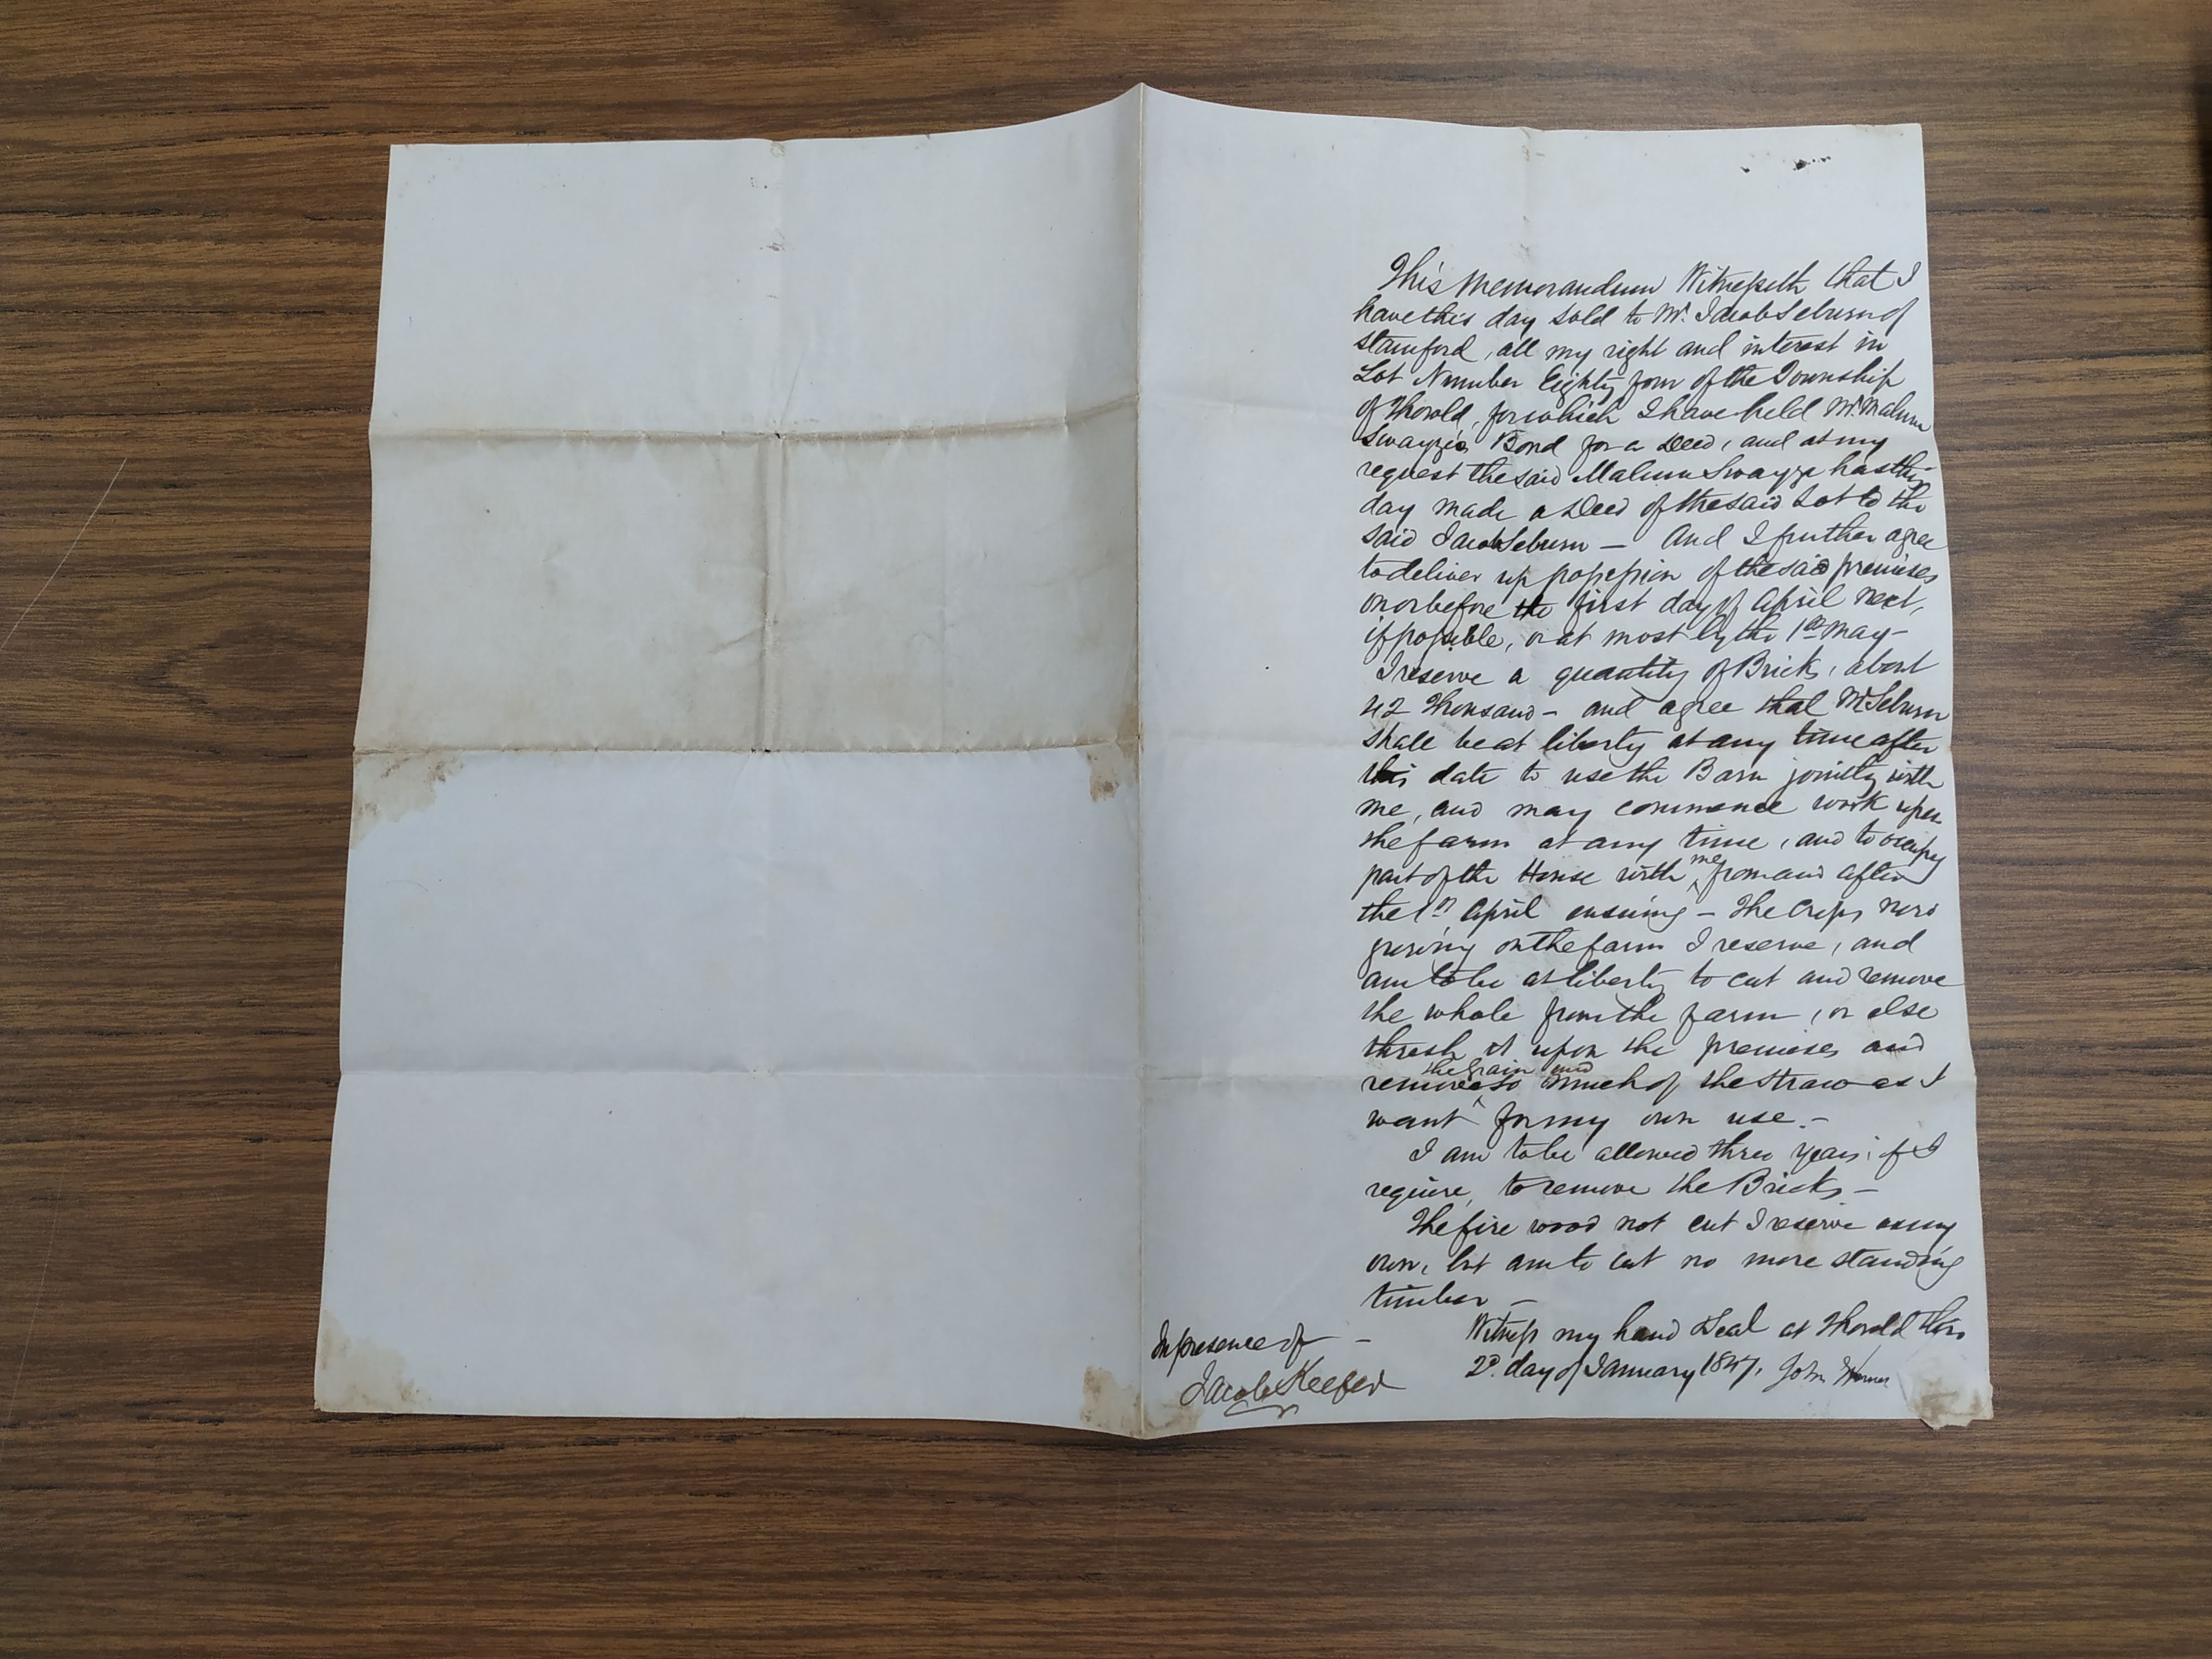 This Memorandum Witnesseth that I
have this day sold to Mr. Jacob Misener of
Stamford, all my right and interest in
Lot Number Eighty from of the Township
of Thorold, for which I have held Mr Malum
Swayze, Bond for a Deed, and at my
request the said Malum Swayze has this
day made a Deed of the said Lot to the
said Jacob — And I further agree
to deliver up possession of the said premises
on or before the first day of April next,
if possible, or at most by the 1st May —
I reserve a quantity of Brick, about
42 Thousand — and agree that Mr
shall be at liberty at any time after
this date to use the Barn jointly with
me, and may commence work upon
the farm at any time, and to occupy
part of the House with me from and after
the 1st April ensuing — The Crops now
growing on the farm I reserve, and
am to be at liberty to cut and remove
the whole from the farm, or else
thresh it upon the premises and
remove the grain and so much of the straw as I
want for my own use. —
I am to be allowed three Years if I
require, to remove the Bricks. —
The fire wood not cut I reserve any
own, but am to cut no more standing
timber
Witness my hand & Seal at Thorold this
22d day of January 1847. John
In presence of —
Jacob Keefer